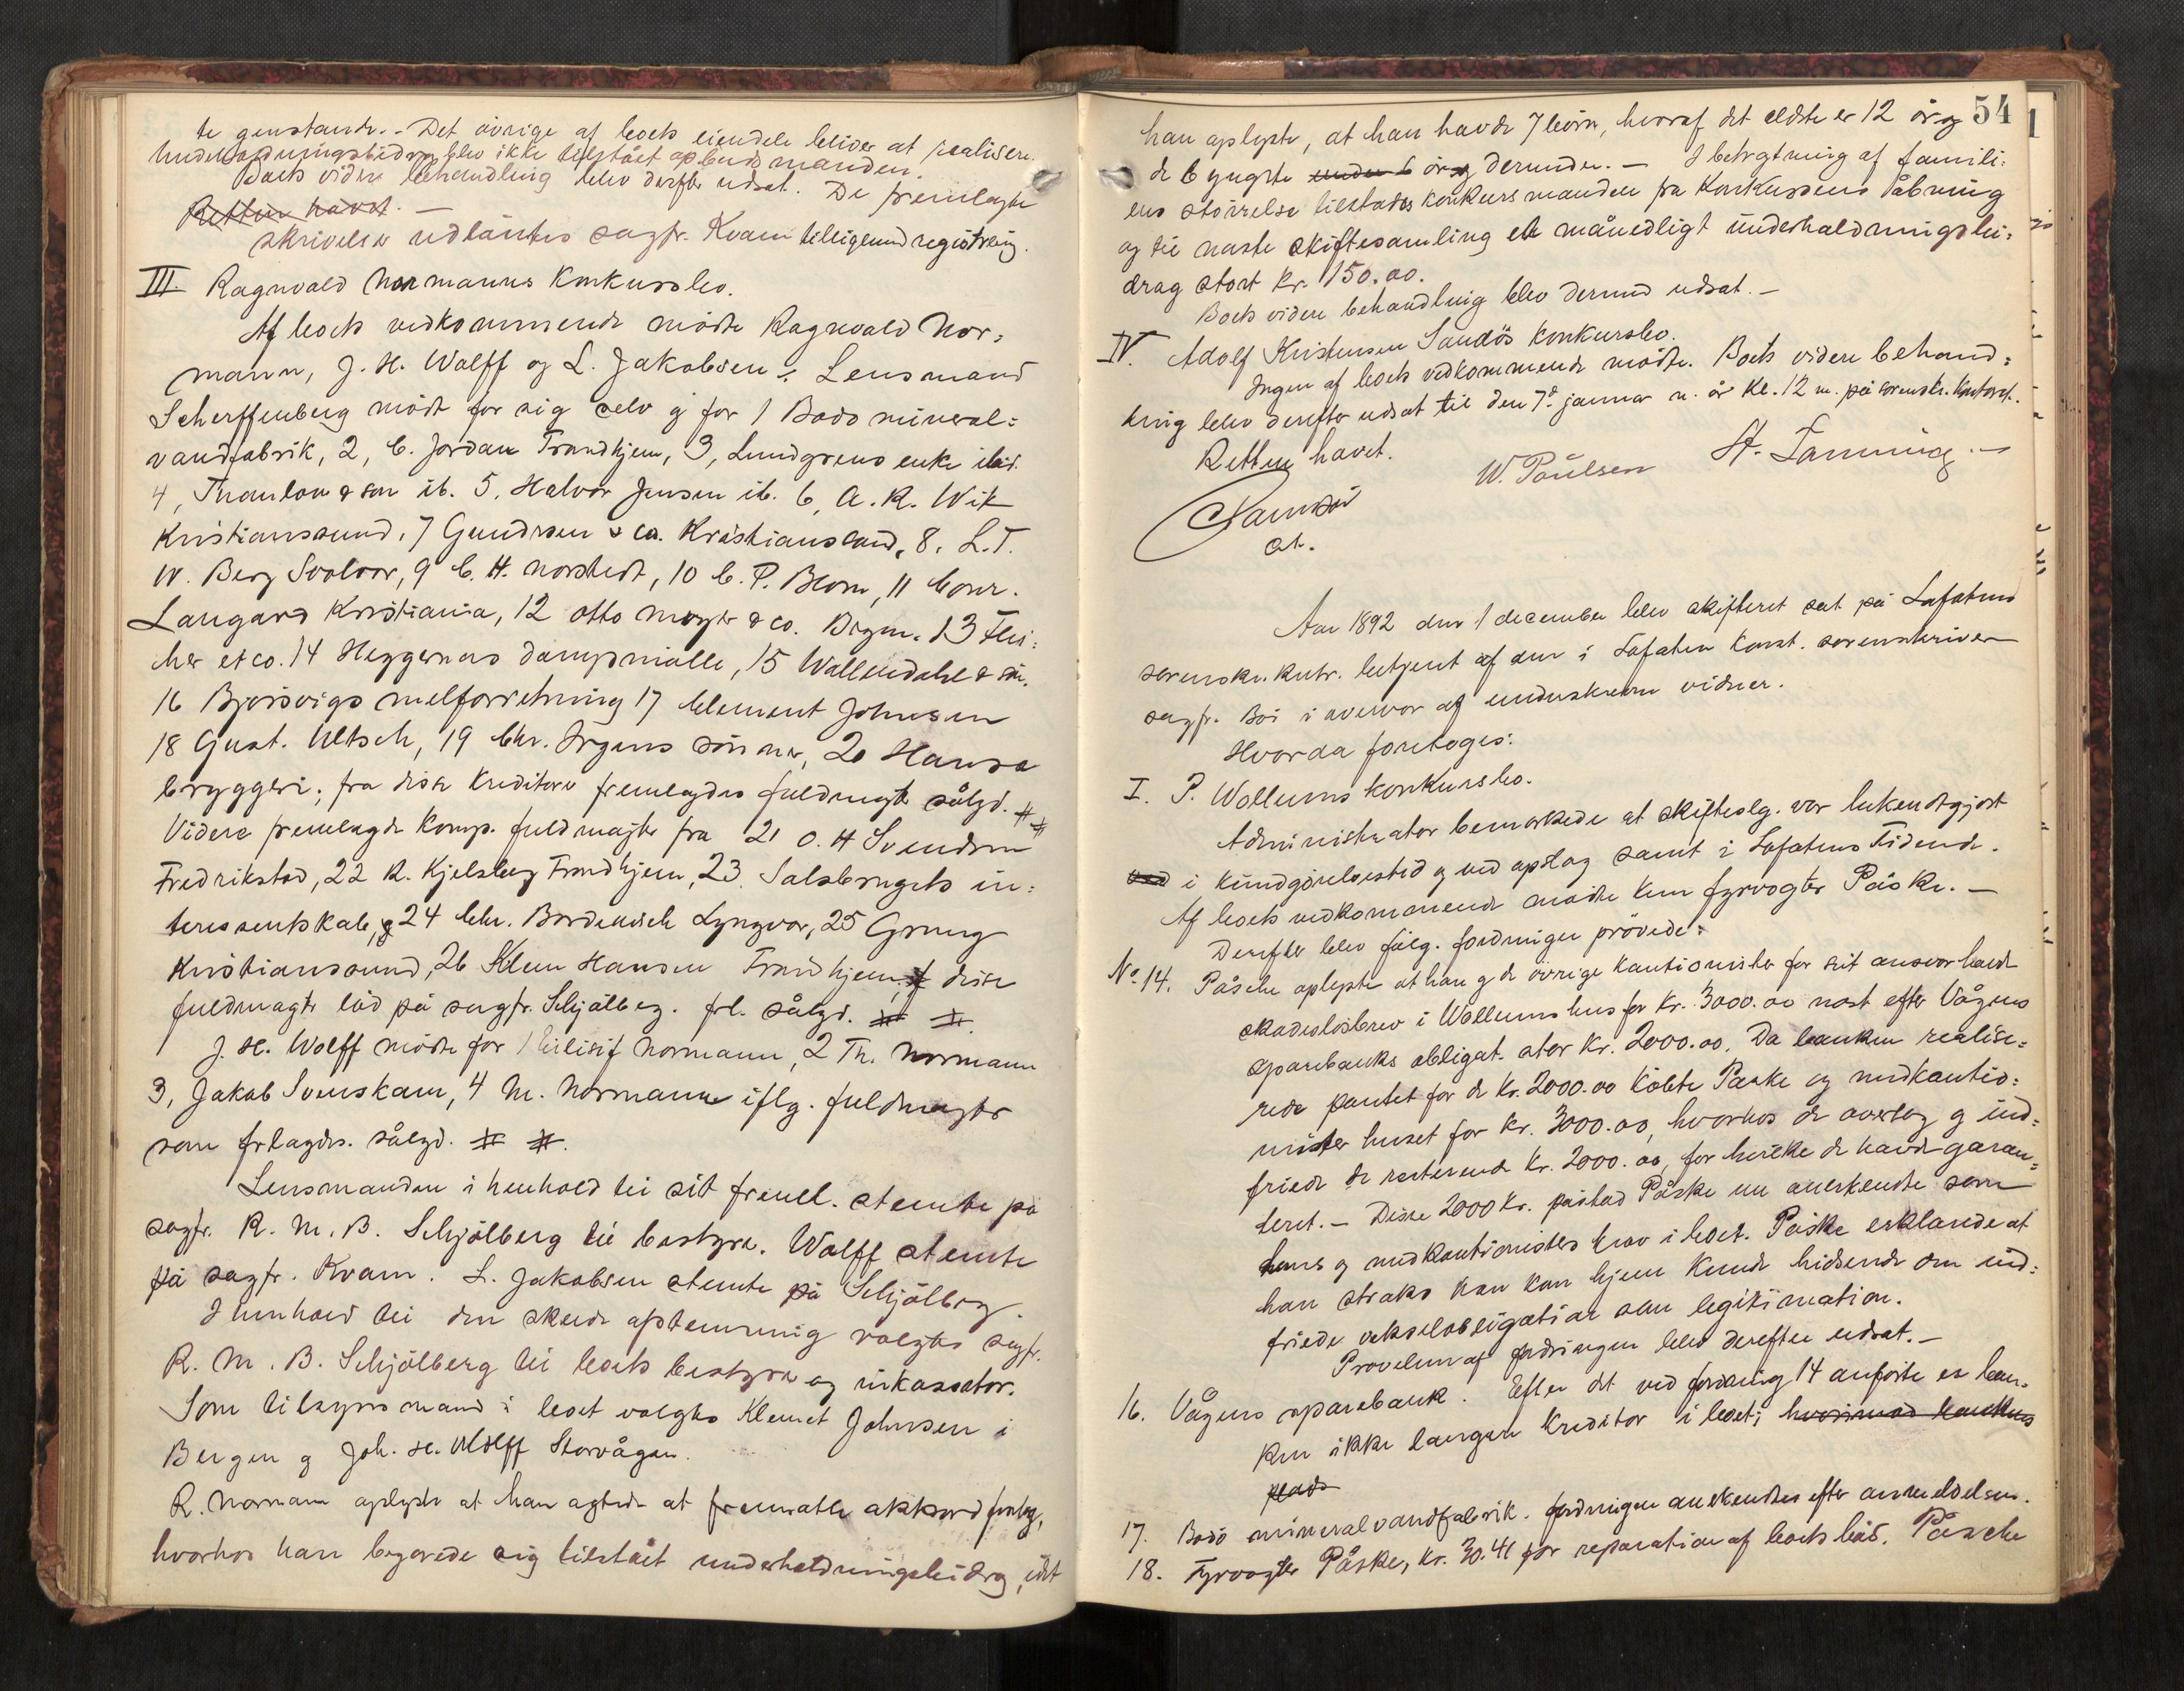 te genstande. - Det övrige af boets eiendele bliver at realisere.
Underholdningsbidrag blev ikke tilstået opbudsmanden.
Boets videre behandling blev derfter udsat. De fremlagte
Retten hævet. —
skrivelser udlåntes sagfr. Kvam tilligemed registrering.
III. Ragnvald Normanns konkursbo.
Af boets vedkommende mödte Ragnvald Nor-
mann, J. H. Wolff og L. Jakobsen. Lensmand
Scherffenberg mödte for sig selv og for 1 Bodö mineral-
vandfabrik, 2, C. Jordan Trondhjem, 3, Lundgrens enke ibid.
4, Thaulow & sön ib. 5. Halvor Jensen ib. 6, A. K. Wik
Kristianssund, 7 Gundersen & co. Kristianssand, 8. L. T.
W. Berg Svolvær, 9 C. H. Norstedt, 10 C. P. Blom, 11 Conr.
Langaard Kristiania, 12 Otto Meyer & co. Bergen. 13 Flei-
sher et co. 14 Heggernæs dampmölle, 15 Wallendahl & sön.
16 Bjørsvigs melforretning 17 Clement Johnsen
18 Gust. Ultsch, 19 Chr. Irgens sönner, 20 Hansa
bryggeri; fra disse kreditorer fremlagdes fuldmagter sålgd. # #
Videre fremlagde komp. fuldmagter fra 21 O. H. Svendsen
Fredrikstad, 22 R. Kjelsberg Trondhjem, 23. Salsbrugets in-
teressentskab, og 24 Chr. Bordewich Lyngvær, 25 Grung
Kristianssund, 26 Klem Hansen Trondhjem, disse
fuldmagter löd på sagfr. Schjölberg. frl. sålgd. # #.
J. H. Wolff mödte for 1 Eilisif Normann, 2 Th. Normann
3, Jakob Svenskam, 4 M. Normann iflg. fuldmagter
som frlagdes. sålgd. # #.
Lensmanden i henhold til sit freml. stemte på
sagfr. R. M. B. Schjölberg til bestyrer. Wolff stemte
på sagfr. Kvam. L. Jakobsen stemte på Schjölberg.
I henhold til den skede afstemning valgtes sagfr.
R. M. B. Schjölberg til boets bestyrer og inkassator.
Som tilsynsmænd i boet valgtes Klemet Johnsen i
Bergen og Joh. H. Wolff Storvågan.
R. Normann oplyste at han agtede at fremsætte akkordforslag,
hvorhos han begjærede sig tilstået underholdningsbidrag, idet
54
han oplyste, at han havde 7 börn, hvoraf det ældste er 12 år og
de 6 yngste under 6 år og derunder. — I betragtning af famili-
ens störrelse tilstodes konkursmanden fra konkursens åbning
og til næste skiftesamling et månedligt underholdningsbi-
drag stort kr. 150.00.
Boets videre behandling blev dermed udsat. —
IV. Adolf Kristensen Sandös konkursbo.
Ingen af boets vedkommende mödte. Boets videre behand-
ling blev derefter udsat til den 7de januar n. år kl. 12 m. på sorenskr. kontoret.
Retten hævet.
W. Poulsen H. Lanning. —
cst.
Aar 1892 den 1 december blev skifteret sat på Lofotens
sorenskr. kntr. betjent af den i Lofoten konst. sorenskriver
sagfr. Boi i overvær af underskrevne vidner.
Hvorda foretoges:
I. P. Wollums konkursbo.
Administrator bemærkede at skiftesлg. var bekendtgjort
ved i kundgörelsestid. og ved opslag samt i Lofotens Tidende.
Af boets vedkommende mödte kun fyrvogter Påske. —
Derefter blev fölg. fordringer prövede:
No. 14. Påsche oplyste at han og de övrige kautionister for sit ansvar havde
skadeslösbrev i Wollums hus for kr. 3000.00 næst efter Vågens
sparebanks obligat. stor kr. 2000.00. Da banken realise-
rede pantet for de kr. 2000.00 köbte Påske og medkautio-
nister huset for kr. 3000.00, hvorhos de overtog og ind-
friede de resterende kr. 2000.00, for hvilke de havde garan-
teret. — Disse 2000 kr. påstod Påske nu anerkendte som
hans og medkautionisters krav i boet. Påske erklærede at
han straks han kom hjem kunde hidsende den ind-
friede vekselobligation som legitimation.
Prövelsen af fordringen blev derefter udsat. —
16. Vågens sparebank. Efter det ved fordring 14 anförte er ban-
ken ikke længere kreditor i boet; hvorimod bankens
plads
17. Bodö mineralvandfabrik. fordringen anerkendtes efter anmeldelsen.
18. Fyrvogter Påske, kr. 30.41 for reparation af boets båd. Påsche